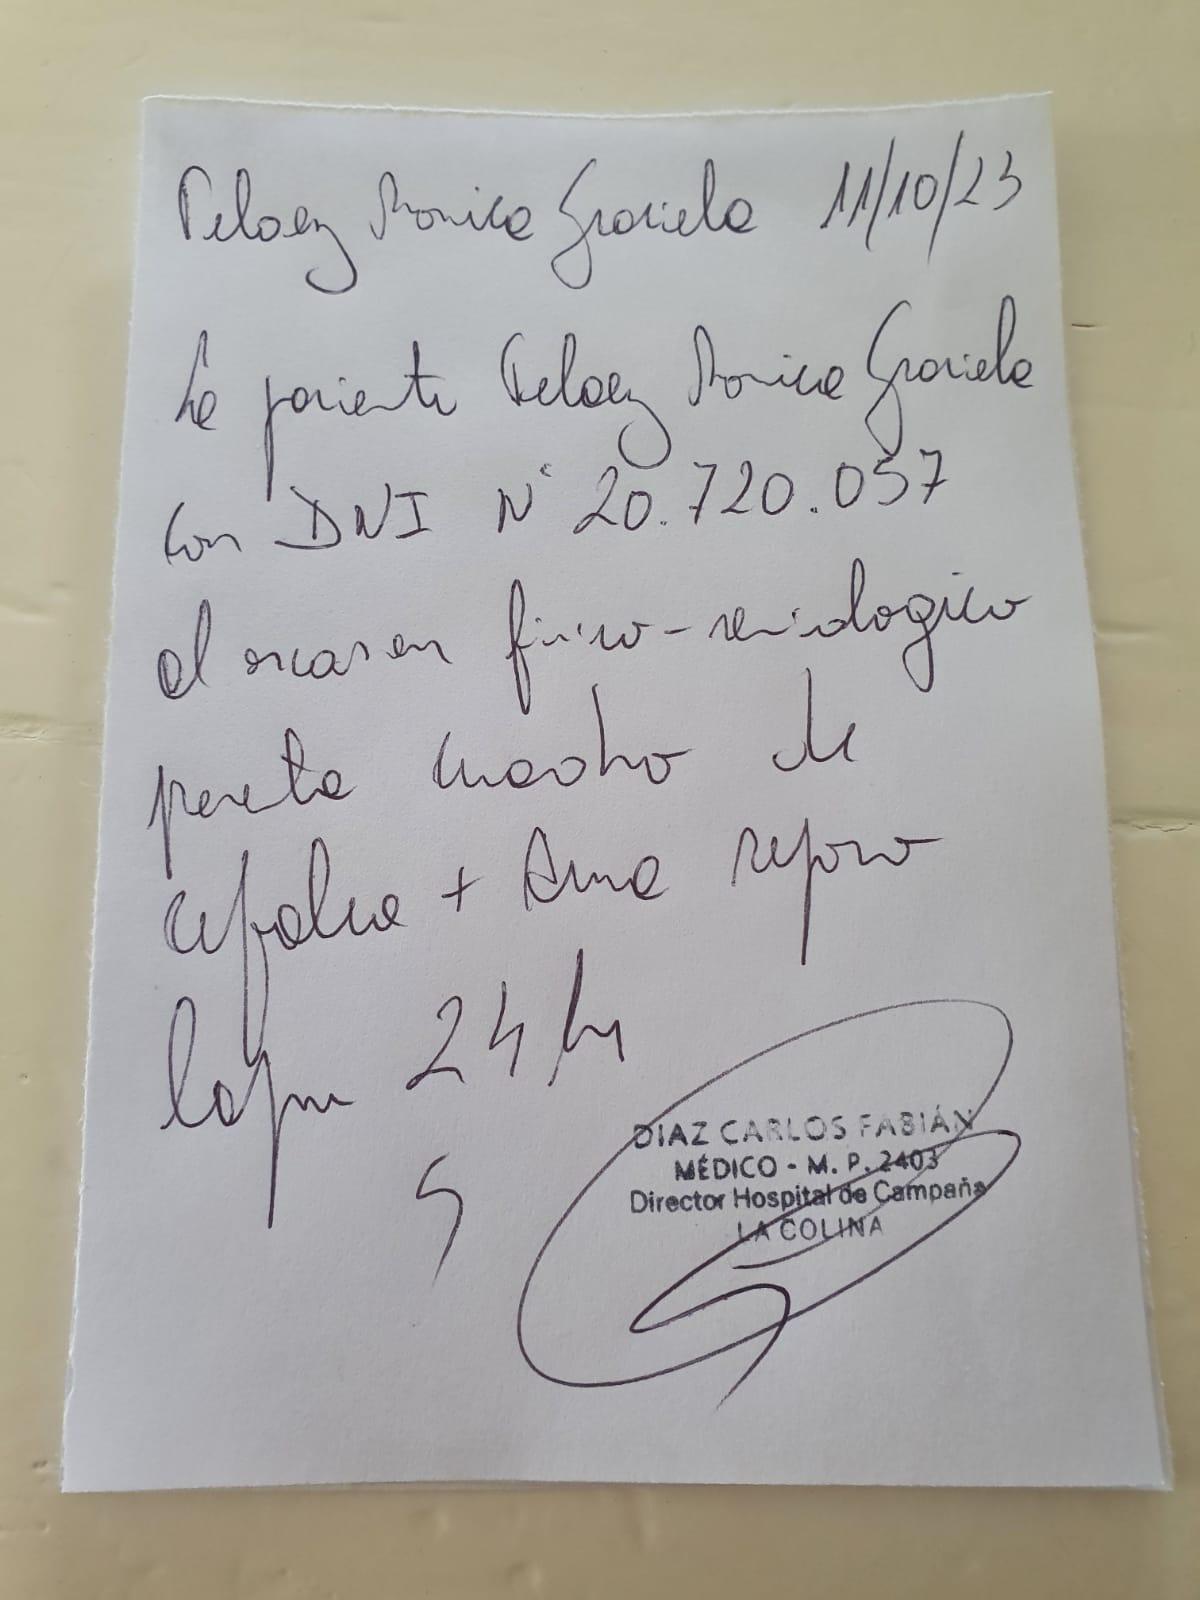 Pelaez Monica Graciela 11/10/23
La paciente Pelaez Monica Graciela
con DNI N° 20.720.057
al examen fisico-semiologico
presenta cuadro de
cefalea + reposo
laboral 24 hs
DIAZ CARLOS FABIÁN
MÉDICO - M. P. 2403
Director Hospital de Campaña
LA COLINA